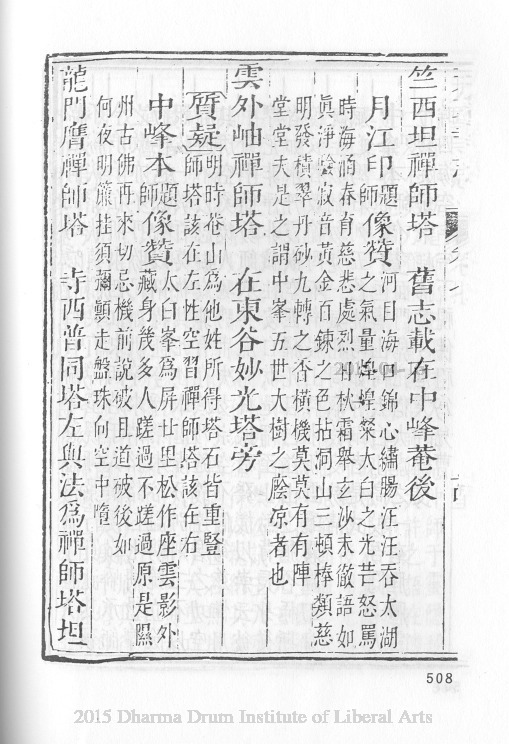 竺西坦禪師塔　舊志載在中峰菴後
月江印師題像贊
河目海口錦心繡腸汪汪吞太湖
之氣量煌煌粲太白之光芒怒罵
時海涵春育慈悲處烈日秋霜舉玄沙未徹語如
真淨噞寂音黃金百鍊之色拈洞山三頓棒類慈
明發積翠丹砂九轉之香橫機莫莫有有陣
堂堂夫是之謂中峯五世大樹之廕凉者也
雲外岫禪師塔　在東谷妙光塔旁
質疑
明時菴山為他姓所得塔石皆重豎
師塔該在左性空習禪師塔該在右
中峰本師題像贊
太白峯為屏廿里松作座雲影外
藏身幾多人蹉過不蹉過原是隰
州古佛再來切忌機前說破且道破後如
何夜明簾挂須彌顛走盤珠向空中墮
龍門膺禪師塔　寺西普同塔左與法為禪師塔坦
508
2015 Dharma Drum Institute of Liberal Arts